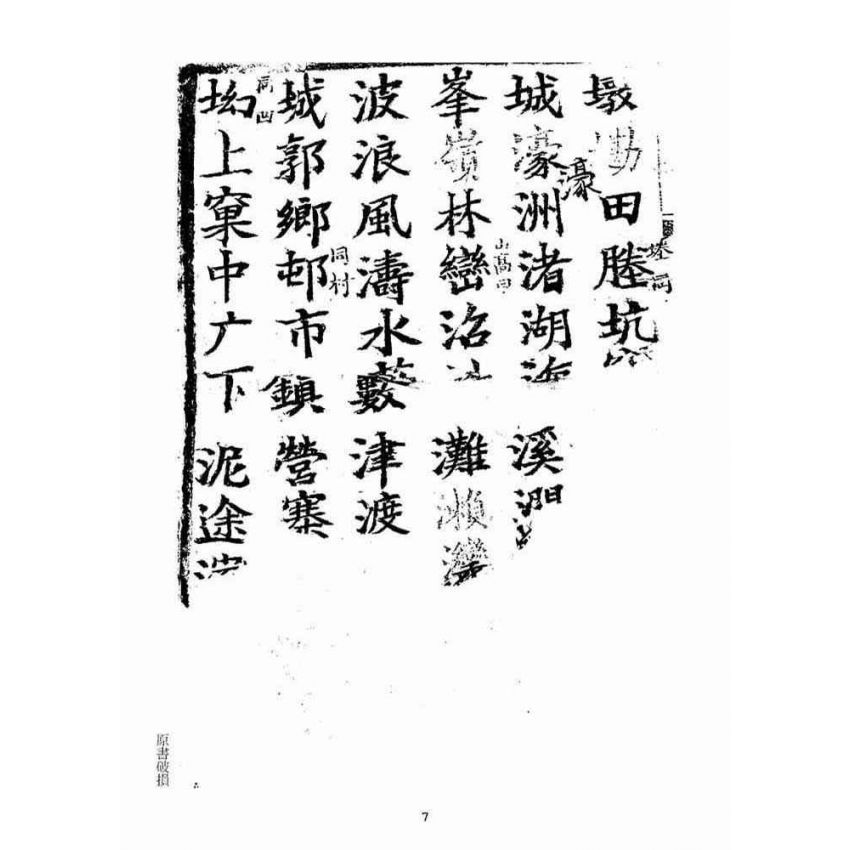 墩田塍坑
城濠洲渚湖海溪澗
濠
峯嶺林巒沿灘瀨灣
山高
波浪風濤水藪津渡
城郭鄉邨市鎮營寨
同村
坳上窠中广下泥途
同凹
原書破損
7